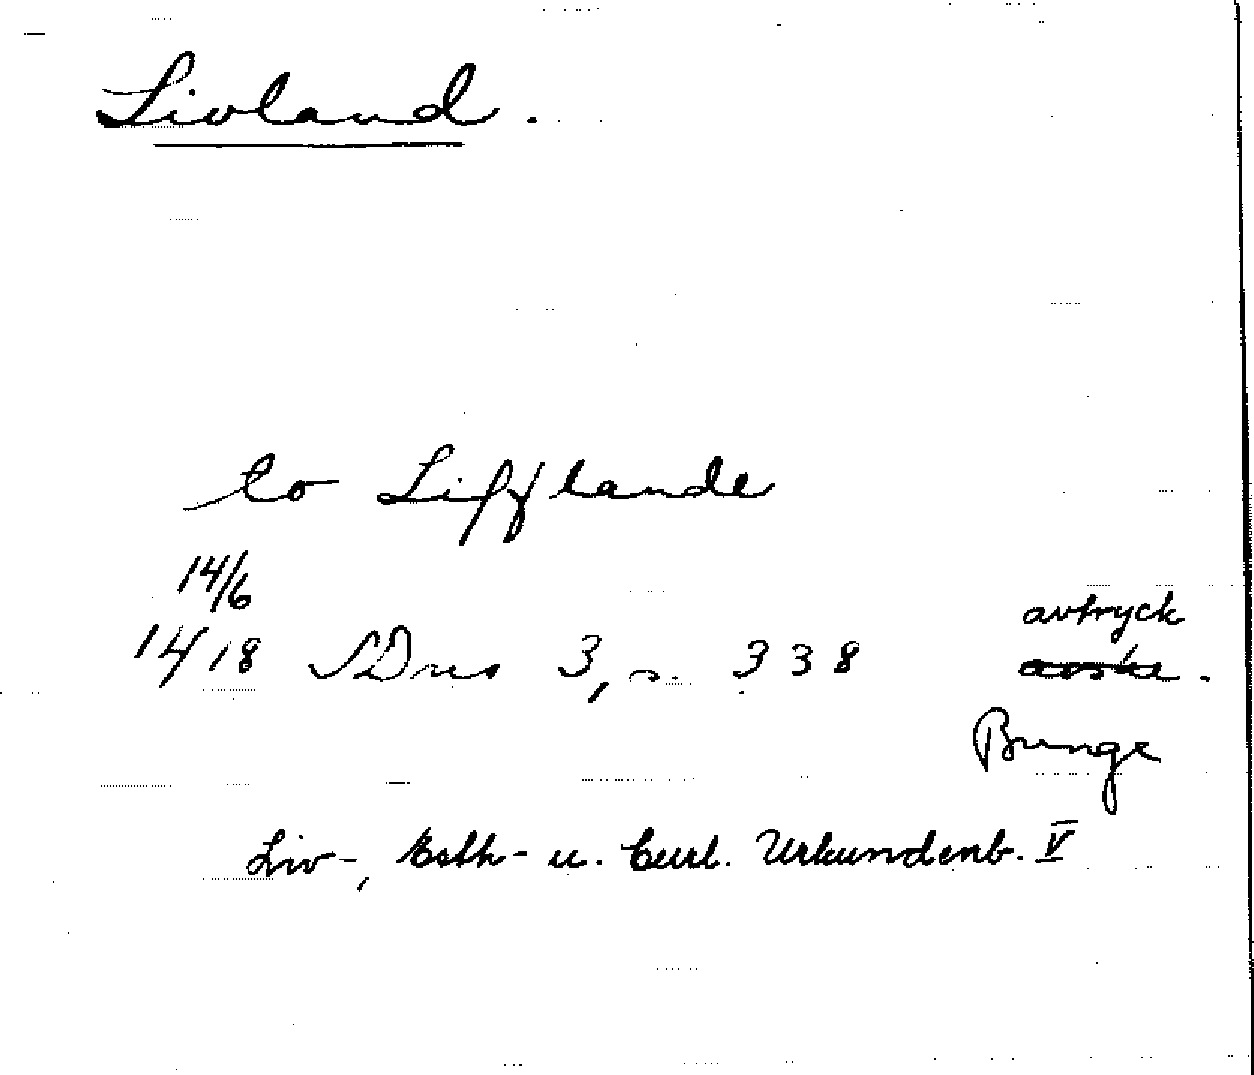 Livland.
to Lifflande
14/6
1418 SDns 3, s. 338 avtryck
Bunge
Liv-, Esth- u. Curl. Urkundenb. V